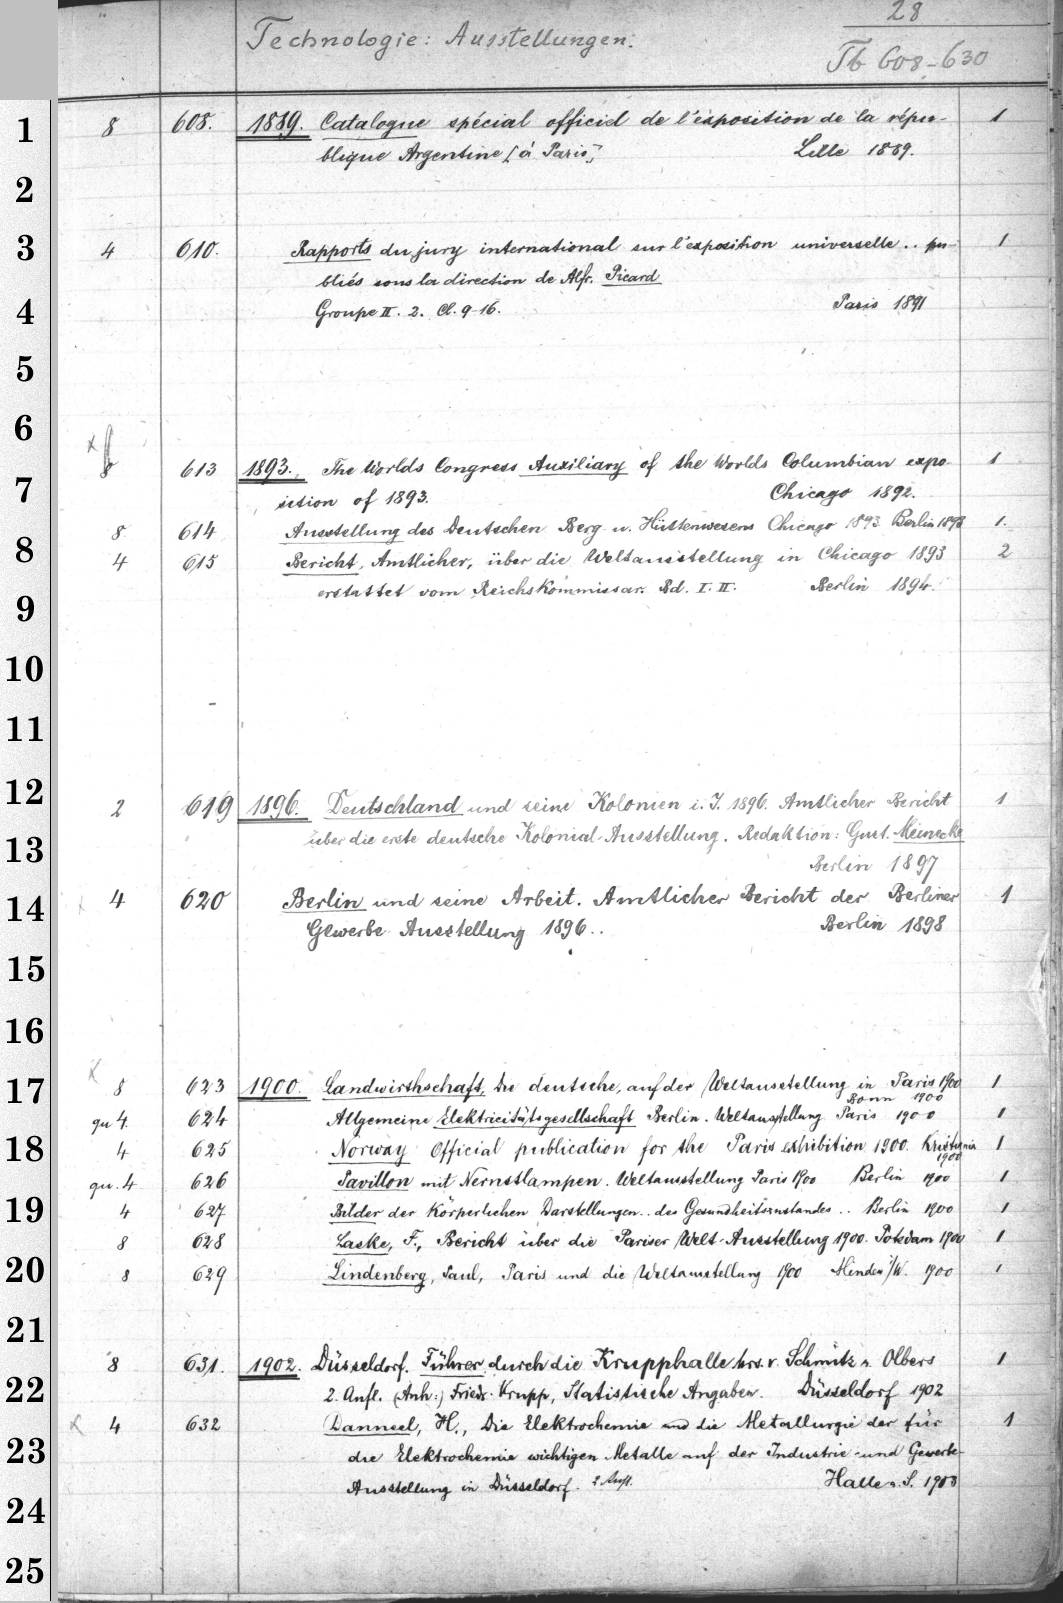 28
Technologie: Ausstellungen.
Tb 608-630
1
8 608. 1889. Catalogue spécial officiel de l'exposition de la répu- 1
blique Argentine [à Paris] Lille 1889.
2
3
4 610. Rapports du jury international sur l'exposition universelle .. pu- 1
bliés sous la direction de Alfr. Picard
4
Groupe II. 2. Cl. 9-16. Paris 1891
5
6
x
8 613 1893. The Worlds Congress Auxiliary of the Worlds Columbian expo- 1
7
sition of 1893. Chicago 1892.
8 614 Ausstellung des Deutschen Berg u. Hüttenwesens Chicago 1893 Berlin 1893 1.
8
4 615 Bericht, Amtlicher, über die Weltausstellung in Chicago 1893 2
erstattet vom Reichskommissar. Bd. I. II. Berlin 1894.
9
10
11
12
2 619 1896. Deutschland und seine Kolonien i. J. 1896. Amtlicher Bericht 1
über die erste deutsche Kolonial-Ausstellung. Redaktion: Gust. Meinecke
13
Berlin 1897
14
x 4 620 Berlin und seine Arbeit. Amtlicher Bericht der Berliner 1
Gewerbe Ausstellung 1896.. Berlin 1898
15
16
17
x 8 623 1900. Landwirthschaft, Die deutsche, auf der Weltausstellung in Paris 1900 1
Bonn 1900
qu 4. 624 Allgemeine Elektricitätsgesellschaft Berlin. Weltausstellung Paris 1900 1
18
4 625 Norway Official publication for the Paris exhibition 1900. Kristiania 1
1900
qu. 4 626 Pavillon mit Nernstlampen. Weltausstellung Paris 1900 Berlin 1900 1
19
4 627 Bilder der körperlichen Darstellungen .. des Gesundheitszustandes .. Berlin 1900 1
8 628 Laske, F., Bericht über die Pariser Welt-Ausstellung 1900. Potsdam 1900 1
20
8 629 Lindenberg, Paul, Paris und die Weltausstellung 1900 Minden i/W. 1900 1
21
8 631. 1902. Düsseldorf. Führer durch die Krupphalle hrs. v. Schmitz u. Olbers 1
22
2. Aufl. (Anh:) Friedr. Krupp, Statistische Angaben. Düsseldorf 1902
x 4 632 Danneel, H., Die Elektrochemie und die Metallurgie der für 1
23
die Elektrochemie wichtigen Metalle auf der Industrie- und Gewerbe-
Ausstellung in Düsseldorf. 2 Aufl. Halle a. S. 1903
24
25